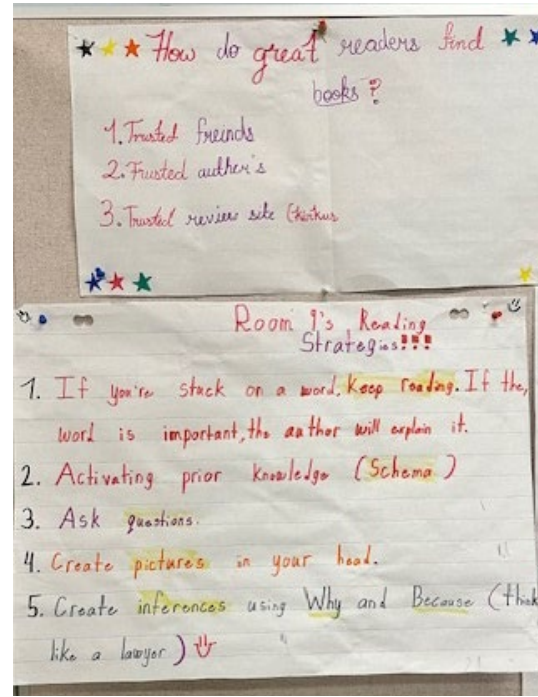 How do great readers find
books?
1. Trusted freinds
2. Trusted auther's
3. Trusted review site (kirkus
Room 9's Reading
Strategies!!!
1. If you're stuck on a word, keep reading. If the,
word is important, the author will explain it.
2. Activating prior knowledge (Schema)
3. Ask questions.
4. Create pictures in your head.
5. Create inferences using Why and Because (think
like a lawyer)